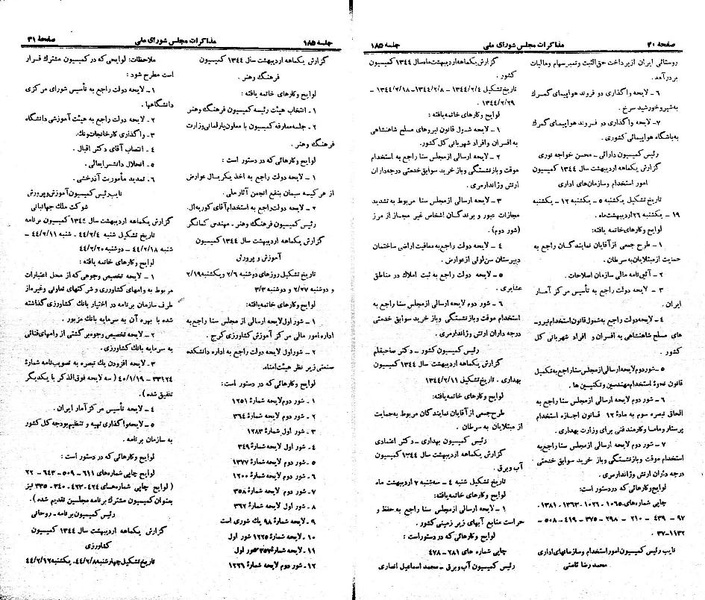 صفحهٔ ۴۰
مذاکرات مجلس شورای ملی
جلسه ۱۸۵
روستائی ایران از پرداخت حق الثبت و تمبر سهام و مالیات
بر درآمد.
۶ ـ لایحه واگذاری دو فروند هواپیمای گمرک
به شیر و خورشید سرخ.
۷ ـ لایحه واگذاری دو فروند هواپیمای گمرک
به باشگاه هواپیمائی کشوری.
رئیس کمیسیون دارائی ـ محسن خواجه نوری
گزارش یکماهه اردیبهشت سال ۱۳۴۴ کمیسیون
امور استخدام و سازمان‌های اداری
تاریخ تشکیل یکشنبه ۵ ـ یکشنبه ۱۲ ـ یکشنبه
۱۹ ـ یکشنبه ۲۶ اردیبهشت ماه.
لوایح و کارهای خاتمه یافته:
۱ ـ طرح جمعی از آقایان نمایندگان راجع به
حمایت از مبتلایان به سرطان.
۲ ـ آئین‌نامه مالی سازمان اصلاحات.
۳ ـ لایحه دولت راجع به تأسیس مرکز آمار
ایران.
۴ ـ لایحه دولت راجع به شمول قانون استخدام نیرو ـ
های مسلح شاهنشاهی به افسران و افراد شهربانی کل
کشور.
۵ ـ شور دوم لایحه ارسالی از مجلس سنا راجع به تکمیل
قانون نحوهٔ استخدام مهندسین و تکنیسین ها.
۶ ـ شور دوم لایحه ارسالی از مجلس سنا راجع به
الحاق تبصره سوم به ماده ۱۲ قانون اجازه استخدام
پرستار و ماما و کارمند فنی برای وزارت بهداری.
۷ ـ شور دوم لایحه ارسالی از مجلس سنا راجع به
استخدام موقت و بازنشستگی و باز خرید سوابق خدمتی
درجه داران ارتش و ژاندارمری.
لوایح و کارهائی که در دستور است:
چاپی شماره‌های: ۱۰۲۱ـ۱۰۶۵ـ۱۳۶۳ـ۱۳۸۱ ـ
۹۷ ـ ۴۳۹ ـ ۲۱۰ ـ ۲۹۸ ـ ۳۷۵ ـ ۴۱۹ ـ ۵۰۸ ـ
۱۱۳۲ـ۳۷۰
نایب رئیس کمیسیون امور استخدام و سازمانهای اداری
محمد رضا ثامنی
گزارش یکماهه اردیبهشت ماه سال ۱۳۴۴ کمیسیون
کشور.
تاریخ تشکیل ۱۳۴۴/۲/۴ ـ ۱۳۴۴/۲/۸ ـ ۱۳۴۴/۲/۱۸ ـ
۱۳۴۴/۲/۲۹.
لوایح و کارهای خاتمه یافته:
۱ ـ لایحه شمول قانون نیروهای مسلح شاهنشاهی
به افسران و افراد شهربانی کل کشور.
۲ ـ لایحه ارسالی از مجلس سنا راجع به استخدام
موقت و بازنشستگی و باز خرید سوابق خدمتی درجه داران
ارتش و ژاندارمری.
۳ ـ لایحه ارسالی از مجلس سنا مربوط به تشدید
مجازات عبور دهندگان اشخاص غیر مجاز از مرز
(شور دوم).
۴ ـ لایحه دولت راجع به معافیت اراضی ساختمان
دبیرستان سن‌لوئی از عوارض.
۵ ـ لایحه دولت راجع به ثبت املاک در مناطق
عشایری.
۶ ـ شور دوم لایحه ارسالی از مجلس سنا راجع به
استخدام موقت و بازنشستگی و باز خرید سوابق خدمتی
درجه داران ارتش و ژاندارمری.
رئیس کمیسیون کشور ـ دکتر صاحبقلم
گزارش یکماهه اردیبهشت سال ۱۳۴۴ کمیسیون
بهداری. تاریخ تشکیل ۱۳۴۴/۲/۱۱
لوایح و کارهای خاتمه یافته:
طرح جمعی از آقایان نمایندگان مربوط به حمایت
از مبتلایان به سرطان.
رئیس کمیسیون بهداری ـ دکتر اعتمادی
گزارش یکماهه اردیبهشت سال ۱۳۴۴ کمیسیون
آب و برق.
تاریخ تشکیل شنبه ۴ ـ سه‌شنبه ۷ اردیبهشت ماه
لوایح و کارهای خاتمه یافته:
۱ ـ لایحه ارسالی از مجلس سنا راجع به حفظ و
حراست منابع آبهای زیر زمینی کشور.
لوایح و کارهائی که در دستور است:
چاپی شماره های ۲۸۱ ـ ۴۷۸
رئیس کمیسیون آب و برق ـ محمد اسماعیل انصاری
جلسه ۱۸۵
مذاکرات مجلس شورای ملی
صفحهٔ ۴۱
گزارش یکماهه اردیبهشت سال ۱۳۴۴ کمیسیون
فرهنگ و هنر.
لوایح و کارهای خاتمه یافته:
۱ ـ انتخاب هیئت رئیسه کمیسیون فرهنگ و هنر
۲ ـ جلسه معارفه کمیسیون با معاون پارلمانی وزارت
فرهنگ و هنر.
لوایح و کارهائی که در دستور است:
۱ ـ لایحه دولت راجع به اخذ یک ریال عوارض
از هر کیسه سیمان بنفع انجمن آثار ملی.
۲ ـ لایحه دولت راجع به استخدام آقای گوریه‌آل.
رئیس کمیسیون فرهنگ و هنر ـ مهندس کمانگر
گزارش یکماهه اردیبهشت سال ۱۳۴۴ کمیسیون
آموزش و پرورش
تاریخ تشکیل روزهای دوشنبه ۲/۶ و یکشنبه ۲/۱۹
و دوشنبه ۲/۲۷ و دوشنبه ۳/۳
لوایح و کارهای خاتمه یافته:
۱ ـ شور اول لایحه ارسالی از مجلس سنا راجع به
اداره امور مالی مرکز آموزش کشاورزی کرج.
۲ ـ شور اول لایحه دولت راجع به اداره دانشکده
صنعتی زیر نظر هیئت امناء.
لوایح و کارهائی که در دستور است:
۱ ـ شور دوم لایحه ۱۲۵۱
۲ ـ شور دوم لایحه ۳۶۴
۳ ـ شور اول لایحه ۱۲۸۳
۴ ـ شور اول لایحه شماره ۳۴۹
۵ ـ شور دوم لایحه ۱۳۷۷
۶ ـ شور دوم لایحه ۱۲۰۰
۷ ـ شور دوم لایحه ۳۵۸
۸ ـ شور دوم لایحه ۳۹۲
۹ ـ لایحه شماره ۹۸ یک شوری است
۱۰ ـ لایحه ۱۲۲۵ شور اول
۱۱ ـ لایحه شور اول
۱۲ ـ شور دوم لایحه ۱۲۲۶
ملاحظات: لوایحی که در کمیسیون مشترک قرار
است مطرح شود:
۱ ـ لایحه دولت راجع به تأسیس شورای مرکزی
دانشگاهها.
۲ ـ لایحه دولت راجع به هیئت آموزشی دانشگاه
۳ ـ واگذاری کارخانجات ونک.
۴ ـ انتصاب آقای دکتر اقبال.
۵ ـ انحلال دانشسرایعالی.
۶ ـ تمدید مأموریت آذرخشی.
نایب رئیس کمیسیون آموزش و پرورش
شوکت ملک جهانبانی
گزارش یکماهه اردیبهشت سال ۱۳۴۴ کمیسیون برنامه
تاریخ تشکیل شنبه ۴۴/۲/۴. شنبه ۴۴/۲/۱۱ ـ
شنبه ۴۴/۲/۱۸ ـ دوشنبه ۴۴/۲/۲۰
لوایح و کارهای خاتمه یافته:
۱ ـ لایحه تخصیص وجوهی که از محل اعتبارات
مربوط به وامهای کشاورزی و شرکتهای تعاونی و غیره از
طرف سازمان برنامه در اختیار بانک کشاورزی گذاشته
شده با بهره آن به سرمایه بانک مزبور.
۲ ـ لایحه تخصیص وجوه برگشتی از وامهای قنائی
به سرمایه بانک کشاورزی.
۳ ـ لایحه افزودن یک تبصره به تصویبنامه شمارهٔ
۳۳۱۲۴ ـ ۴۰/۱/۱۹ (سه لایحه فوق‌الذکر با یکدیگر
تلفیق شده).
۴ ـ لایحه تأسیس مرکز آمار ایران.
۵ ـ لایحه واگذاری تهیه و تنظیم بودجه کل کشور
به سازمان برنامه.
لوایح و کارهائی که در دستور است:
لوایح چاپی شماره‌های ۶۱۱ ـ ۵۰۹ ـ ۶۴۳ ـ ۲۲
(لوایح چاپی شماره‌های ۴۲۳ـ۴۲۴ـ۳۴۰ـ۳۳۵ نیز
بعنوان کمیسیون مشترک برنامه مجلسین تقدیم شده).
رئیس کمیسیون برنامه ـ روحانی
گزارش یکماهه اردیبهشت سال ۱۳۴۴ کمیسیون
کشاورزی
تاریخ تشکیل چهارشنبه ۴۴/۲/۸، یکشنبه ۴۴/۲/۱۲